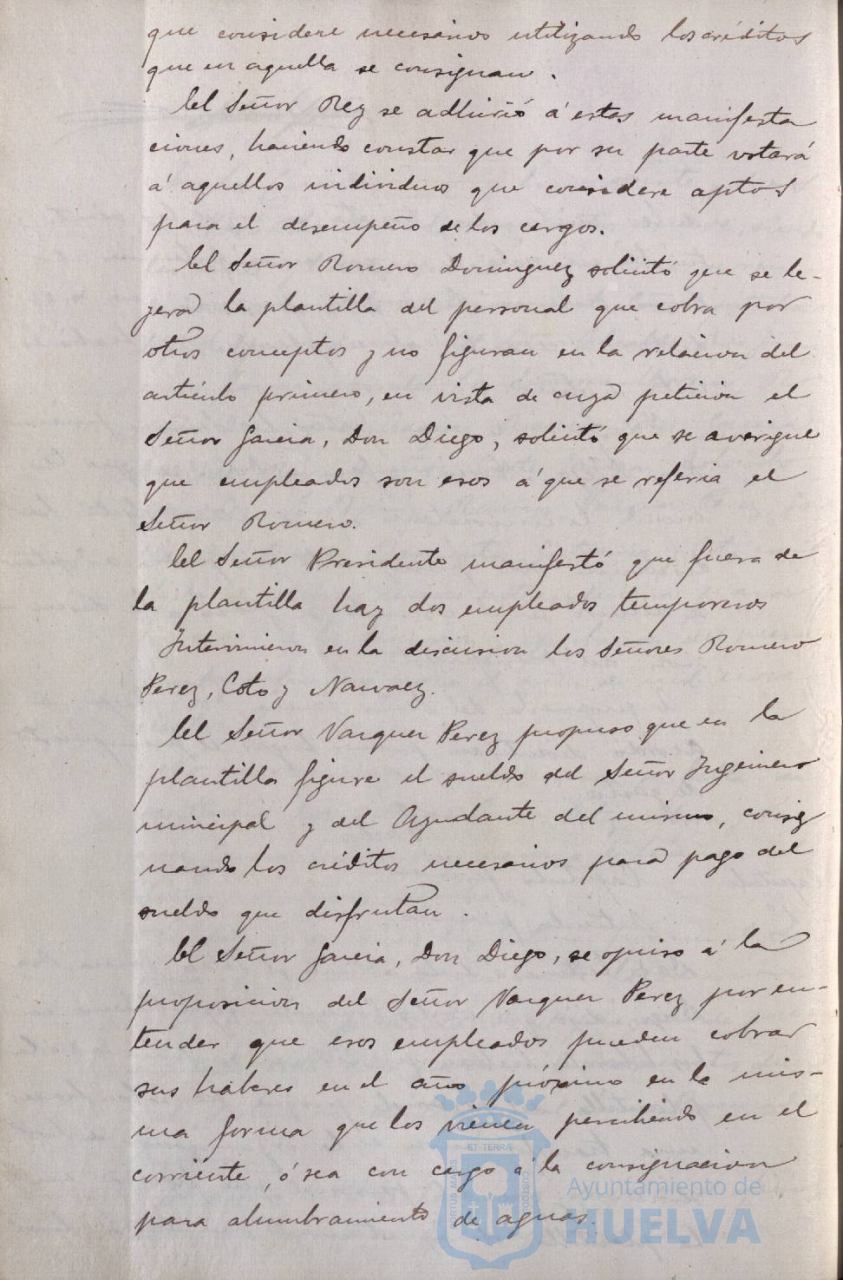 que considere necesarios utilizando los créditos
que en aquella se consignan.
El Señor Rey se adhirió á estas manifesta
ciones, haciendo constar que por su parte votará
á aquellos individuos que considere aptos
para el desempeño de los cargos.
El Señor Romero Dominguez solicitó que se le-
yera la plantilla del personal que cobra por
otros conceptos y no figuran en la relacion del
artículo primero, en vista de cuya peticion el
Señor Garcia, Don Diego, solicitó que se averigue
que empleados son esos á que se referia el
Señor Romero.
El Señor Presidente manifestó que fuera de
la plantilla hay dos empleados temporeros
Intervinieron en la discusion los Señores Romero
Perez, Coto y Narvaez.
El Señor Vazquez Perez propuso que en la
plantilla figure el sueldo del Señor Ingeniero
municipal y del Ayudante del mismo, consig
nando los créditos necesarios para pago del
sueldo que disfrutan.
El Señor Garcia, Don Diego, se opuso á la
proposicion del Señor Vazquez Perez por en-
tender que esos empleados pueden cobrar
sus haberes en el año próximo en la mis-
ma forma que los vienen percibiendo en el
corriente, ó sea con cargo á la consignacion
para alumbramiento de aguas.
Ayuntamiento de
HUELVA